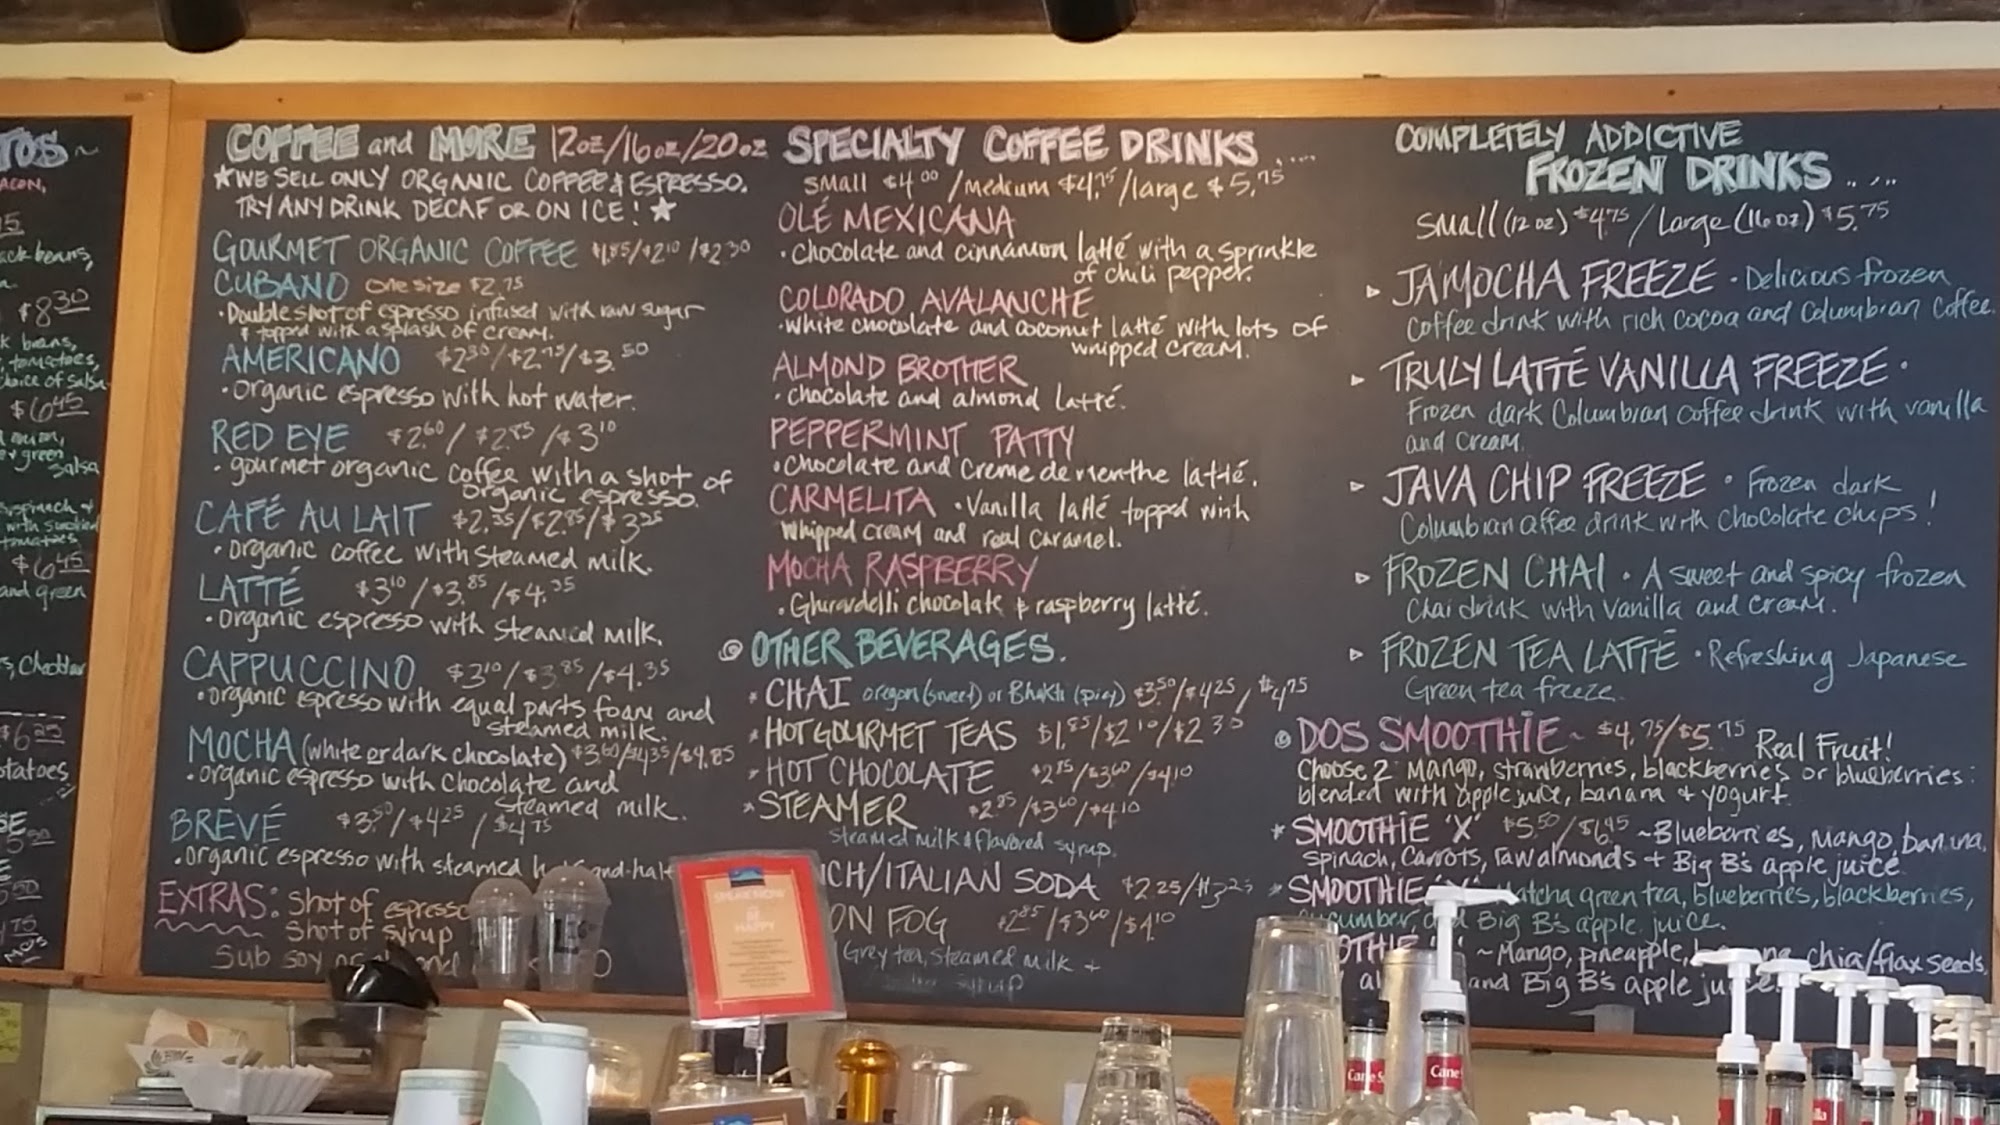 TOS~
ACON,
ack beans,
$8.30
k beans,
tomatoes,
choice of salsa
$6.45
green
salsa
spinach &
with smoked
tomatoes
$6.45
and green
s, Cheddar
$6.25
otatoes
COFFEE and MORE 12oz/16oz/20oz
★WE SELL ONLY ORGANIC COFFEE & ESPRESSO.
TRY ANY DRINK DECAF OR ON ICE! ★
GOURMET ORGANIC COFFEE $1.85/$2.10/$2.30
CUBANO one size $2.75
• Double shot of espresso infused with raw sugar
& topped with a splash of cream.
AMERICANO $2.50/$2.75/$3.50
• organic espresso with hot water.
RED EYE $2.60/$2.85/$3.10
• gourmet organic coffee with a shot of
organic espresso.
CAFÉ AU LAIT $2.35/$2.85/$3.25
• organic coffee with steamed milk.
LATTÉ $3.10/$3.85/$4.35
• organic espresso with steamed milk.
CAPPUCCINO $3.10/$3.85/$4.35
• organic espresso with equal parts foam and
steamed milk.
MOCHA (white or dark chocolate) $3.60/$4.35/$4.85
• organic espresso with chocolate and
steamed milk.
BREVÉ $3.50/$4.25/$4.75
• organic espresso with steamed half-and-hal
EXTRAS: Shot of espresso
Shot of syrup
Sub soy or
SPECIALTY COFFEE DRINKS....
small $4.00/medium $4.75/large $5.75
OLÉ MEXICANA
• Chocolate and cinnamon latté with a sprinkle
of chili pepper.
COLORADO AVALANCHE
• White chocolate and coconut latté with lots of
whipped cream.
ALMOND BROTHER
• chocolate and almond latté.
PEPPERMINT PATTY
• Chocolate and Creme de menthe latté.
CARMELITA • Vanilla latté topped with
whipped cream and real caramel.
MOCHA RASPBERRY
• Ghirardelli chocolate & raspberry latté.
OTHER BEVERAGES.
* CHAI oregon (sweet) or Bhakti (spicy) $3.50/$4.25/$4.75
* HOT GOURMET TEAS $1.85/$2.10/$2.30
* HOT CHOCOLATE $2.85/$3.60/$4.10
* STEAMER $2.85/$3.60/$4.10
steamed milk & flavored syrup.
CH/ITALIAN SODA $2.25/$3.25
ON FOG $2.85/$3.60/$4.10
Grey tea, steamed milk +
syrup
COMPLETELY ADDICTIVE
FROZEN DRINKS.....
small (12 oz) $4.75/Large (16 oz) $5.75
▹ JAMOCHA FREEZE • Delicious frozen
coffee drink with rich cocoa and Columbian Coffee.
▹ TRULY LATTÉ VANILLA FREEZE •
Frozen dark Columbian coffee drink with vanilla
and cream.
▹ JAVA CHIP FREEZE • Frozen dark
Columbian coffee drink with chocolate chips!
▹ FROZEN CHAI • A sweet and spicy frozen
Chai drink with vanilla and cream.
▹ FROZEN TEA LATTÉ • Refreshing Japanese
Green tea freeze.
DOS SMOOTHIE ~ $4.75/$5.75 Real Fruit!
Choose 2 Mango, strawberries, blackberries or blueberries:
blended with apple juice, banana + yogurt.
* SMOOTHIE 'X' $5.50/$6.45 ~ Blueberries, mango, banana,
spinach, carrots, raw almonds + Big B's apple juice
* SMOOTHIE matcha green tea, blueberries, blackberries,
cucumber, and Big B's apple juice.
OTHIE ~ Mango, pineapple, banana, chia/flax seeds,
and Big B's apple juice.
HAPPY
Cane S
Cane